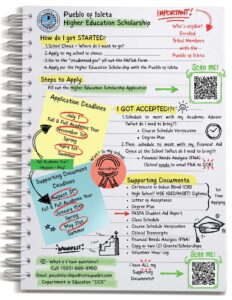 Pueblo of Isleta
Higher Education Scholarship
IMPORTANT!
Who's eligible?
Enrolled
Tribal Members
with the
Pueblo of Isleta
How do I get STARTED?
1. School Choice - Where do I want to go?
2. Apply to my school of choice
3. Go to the "studentaid.gov" fill out the FAFSA Form
4. Apply for the Higher Education Scholarship with the Pueblo of Isleta
SCAN ME!
Steps to Apply:
Fill out the Higher Education Scholarship Application
Application Deadlines
July 1st
Fall & Full Academic Year
November 1st
Spring
April 1st
Summer
I GOT ACCEPTED!?!
1. Schedule to meet with my Academic Advisor
(What do I need to bring?)
Course Schedule Verification
Degree Plan
2. Then, schedule to meet with my Financial Aid
Once at the School (What do I need to bring?)
Financial Needs Analysis (FNA)
Supporting Document
Deadlines
Fall & Full Academic Year
Spring
Summer
Supporting Documents
Certificate of Indian Blood (CIB)
Letter of Acceptance
Degree Plan
FAFSA Student Aid Report
Class Schedule
Course Schedule Verification
Clinical Transcripts
Financial Needs Analysis (FNA)
Copy to two (2) Grants/Scholarships
Volunteer Hour Log
What if I have questions?
Call (505) 869-9790
Department of Education "DOE"
I have
ALL my
Supporting
Documents!
SCAN ME!